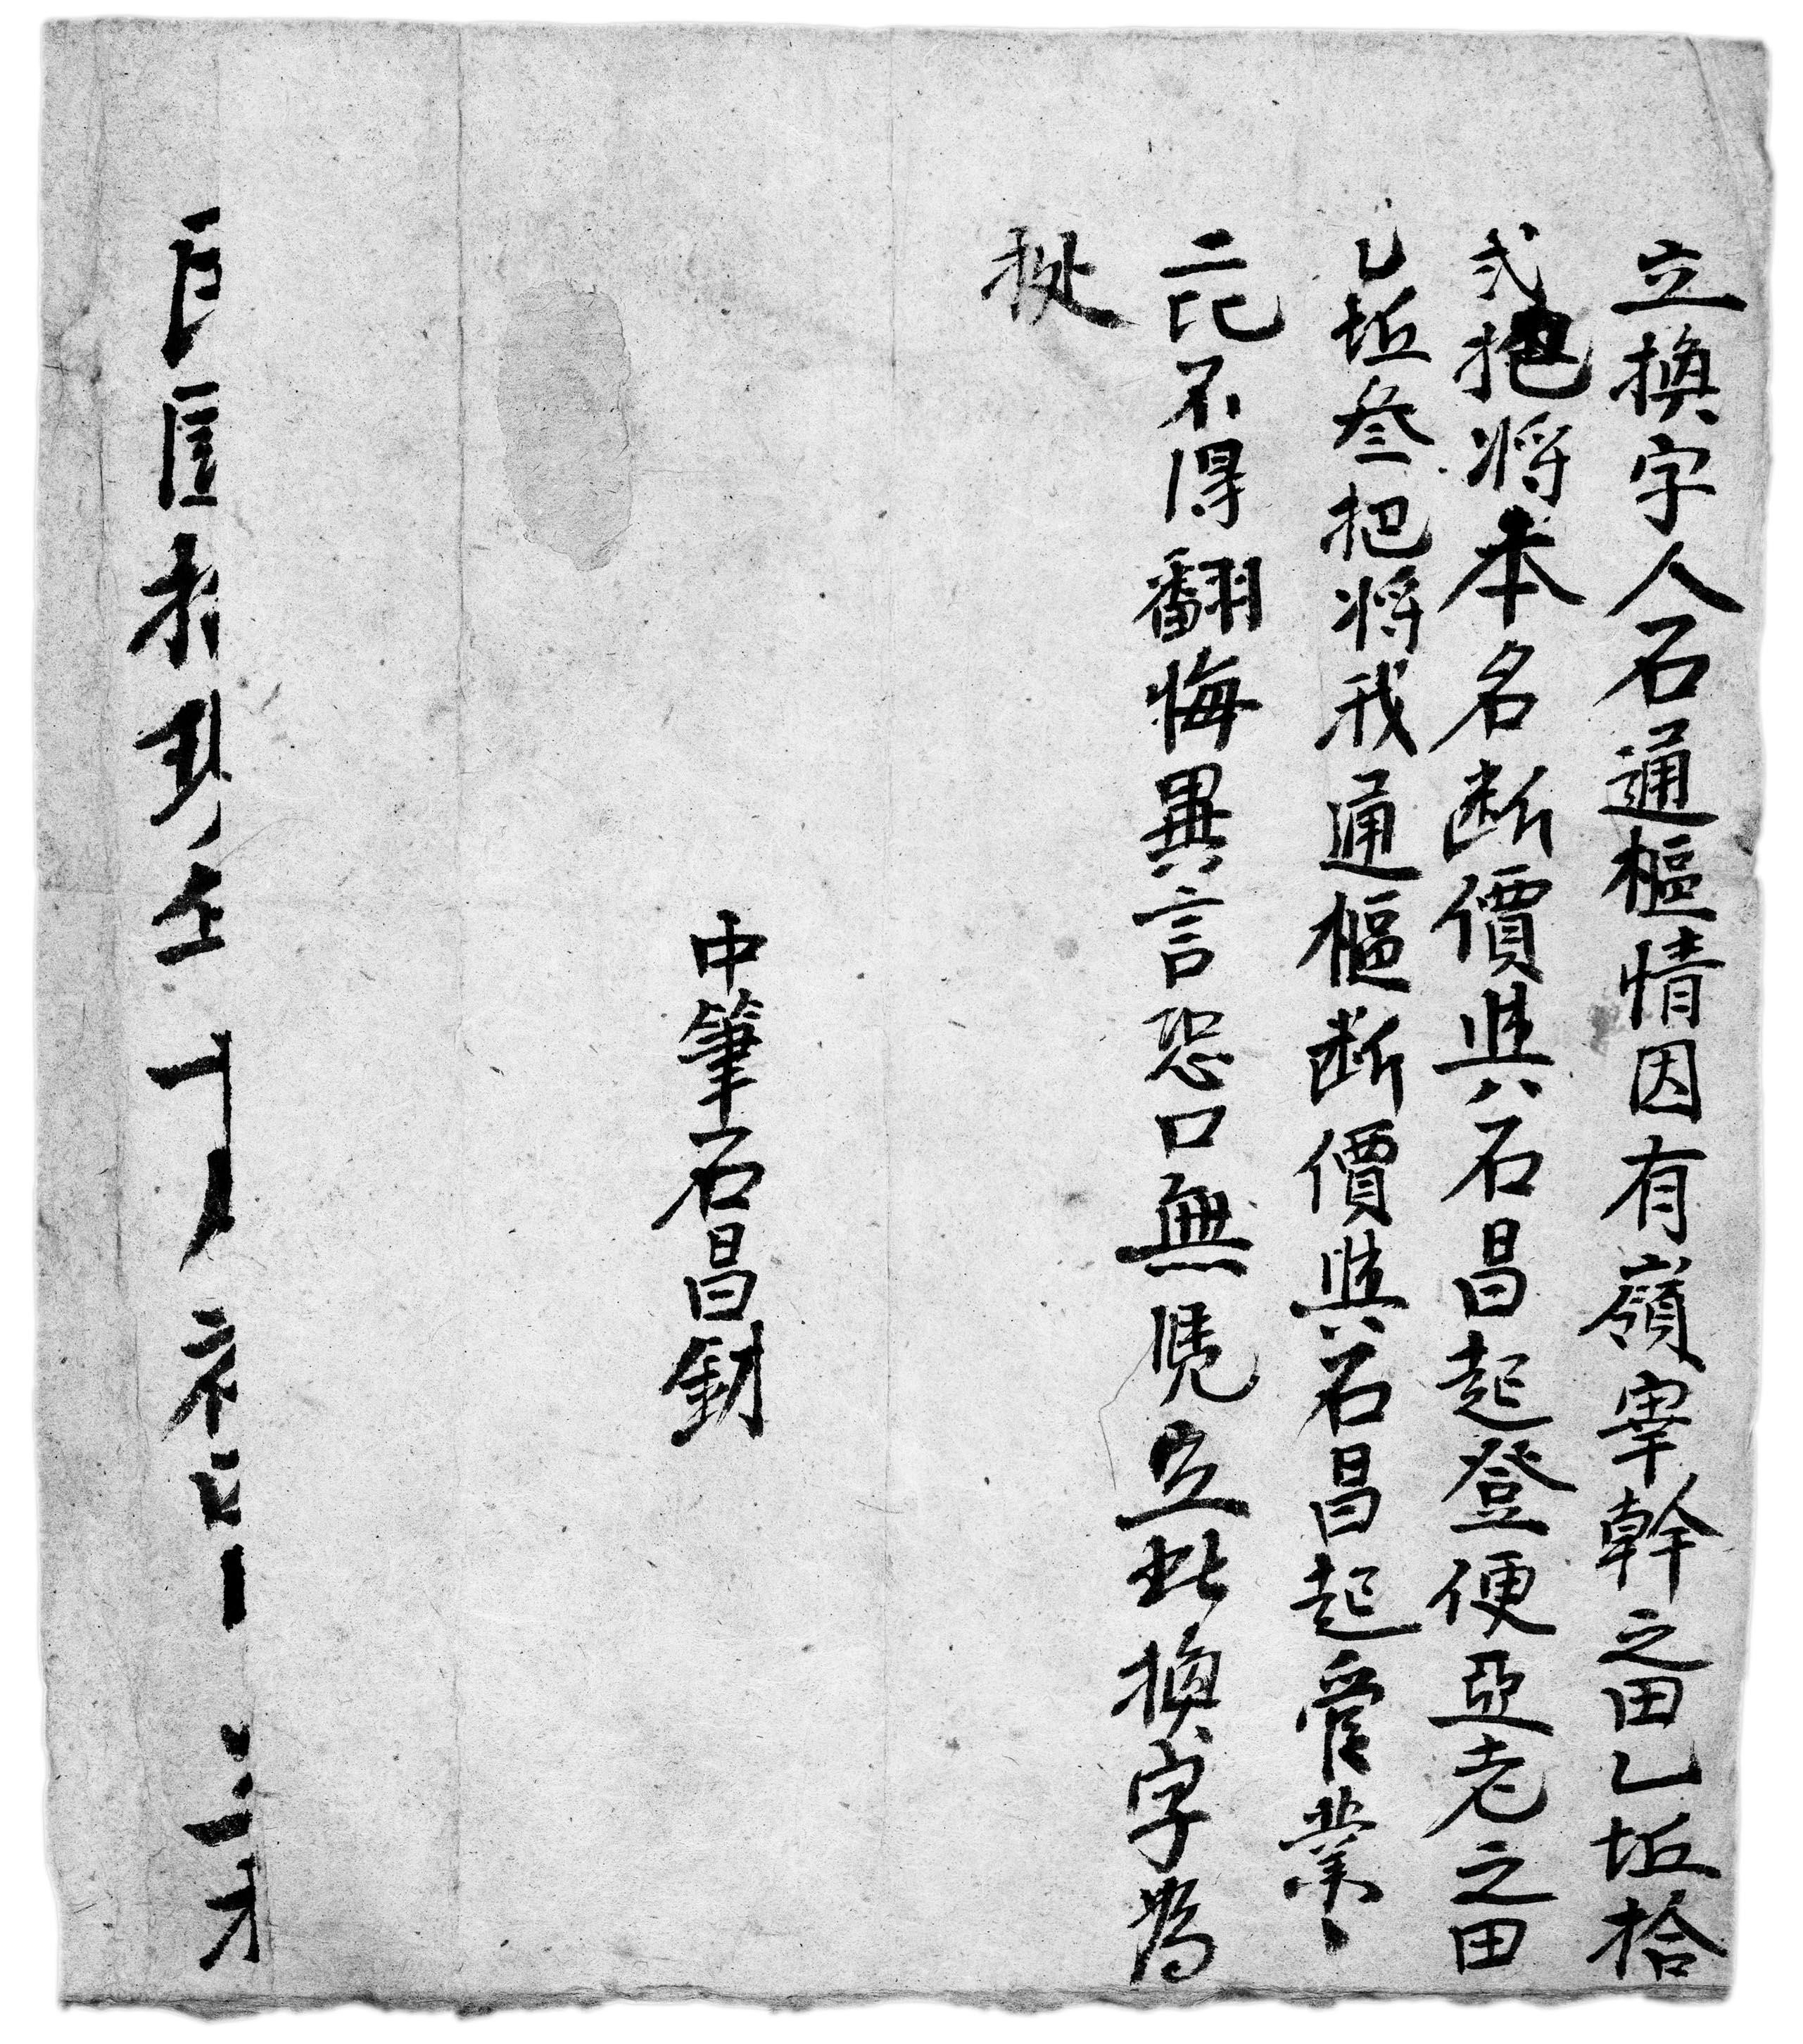 立換字人石通樞情因有嶺寧幹之田乙坵拾
弍把將本名断價與石昌起登便亞老之田
乙坵叄把將我通樞断價與石昌起管業
二比不得翻悔異言恐口無凴立此換字爲
拠
中筆石昌釗